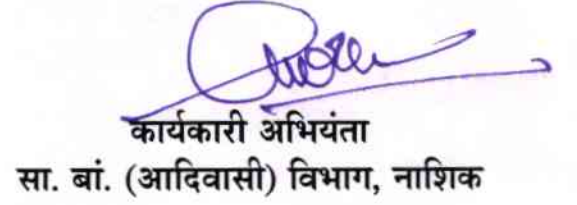 कार्यकारी अभियंता
सा. बां. (आदिवासी) विभाग, नाशिक